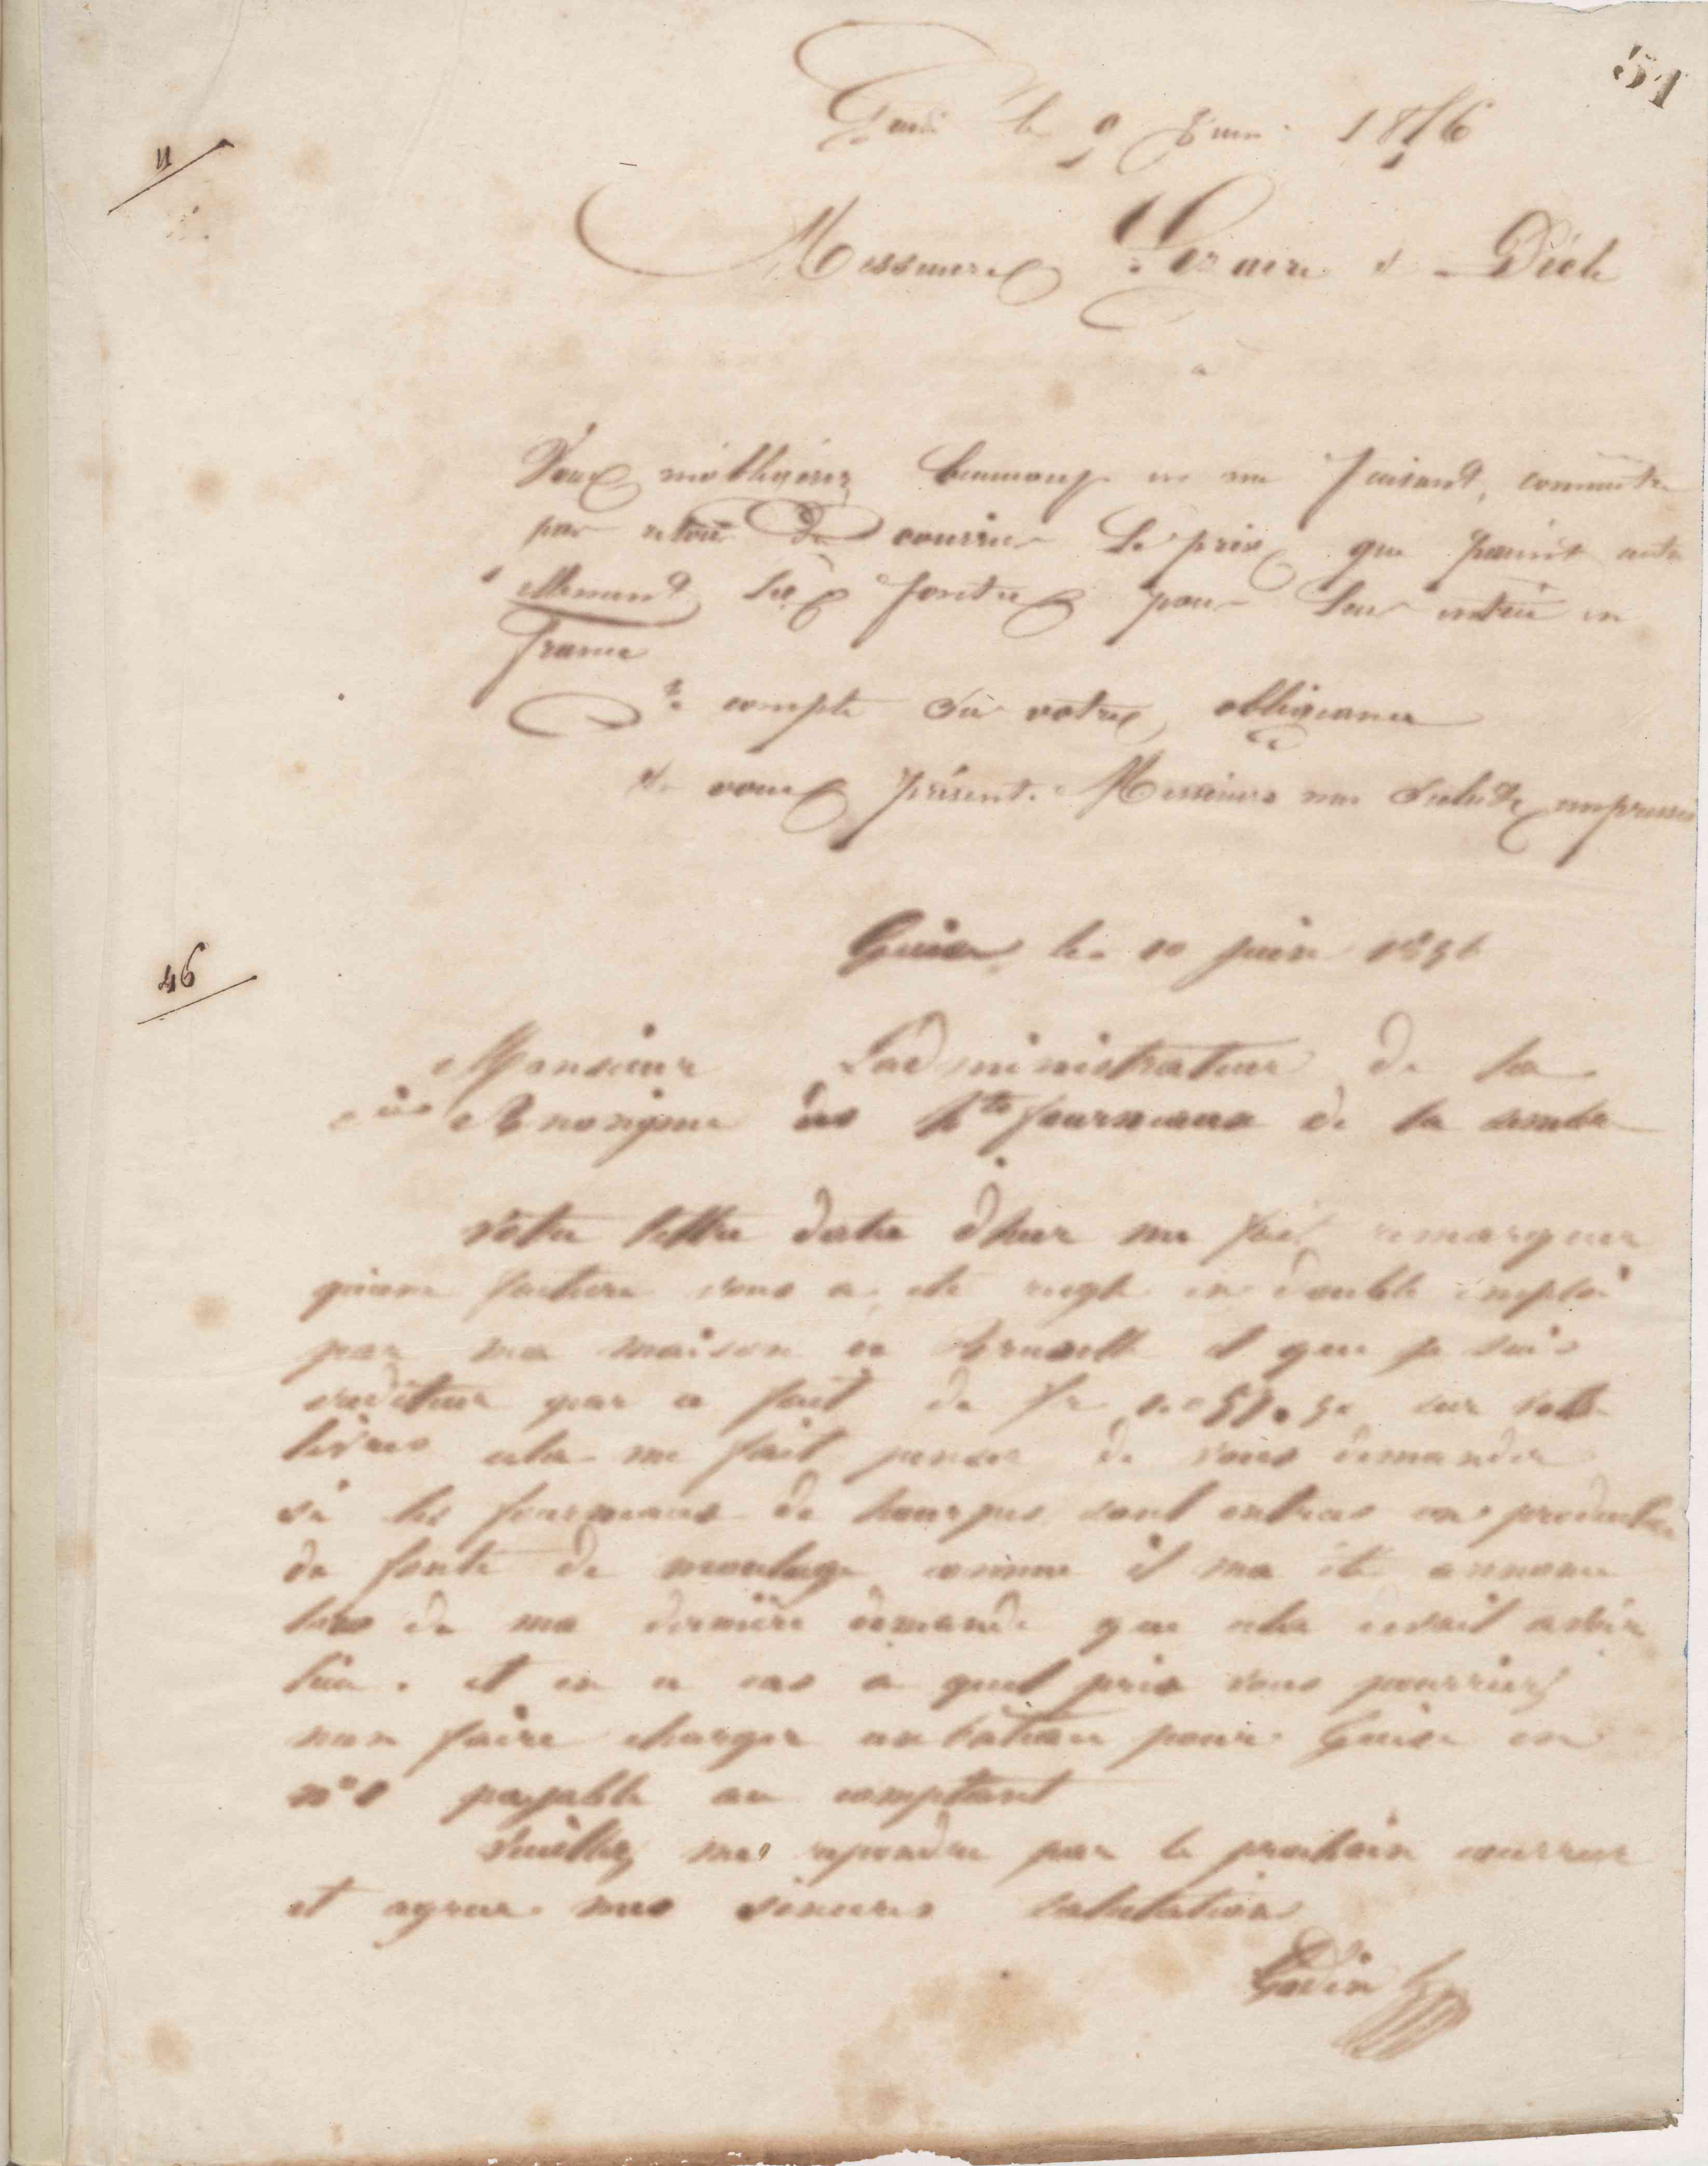 51
Guise le 9 Juin 1856
11
Messieurs & Dieh
Vous m'obligerez beaucoup en me faisant connaitre
par retour de courrier le prix que paient actu
ellement les fontes pour leur entrée en
france
Je compte sur votre obligeance
& vous présente Messieurs mes saluts empressés
46
Guise le 10 juin 1856
Monsieur L'administrateur de la
Anonyme des hts fourneaux de la sambre
Votre lettre date d'hier me fait remarquer
qu'une facture vous a été reglé en double emploi
par ma maison de Bruxelle et que je suis
créditeur par ce fait de fr sur votre
livres cela me fait penser de vous demander
si les fourneaux de hourpes sont entrés en production
de fonte de moulage comme il ma été annoncé
lors de ma dernière demande que cela devait avoir
lieu. et en ce cas a quel prix vous pourriez
men faire charger un bateau pour Guise en
payable au comptant
Veuillez me repondre par le prochain courrier
et agreer mes sinceres salutations
Godin